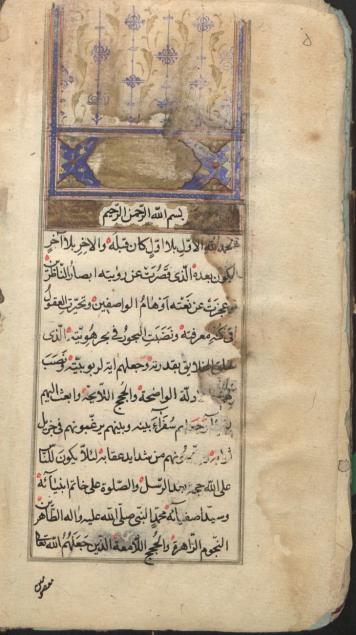 بسم الله الرحمن الرحيم
الحمد لله الاول بلا اول كان قبله والاخر بلا اخر
يكون بعده الذى قصرت عن رويته ابصار الناظرين
وعجزت عن نعته اوهام الواصفين وتحيرت العقول
فى كنه معرفته ونضبت البحور فى بحر هويته الذى
خلق الخلايق بقدرته وجعلهم اية لربوبيته ونصب
لهم الادلة الواضحة والحجج اللايحة وابعث اليهم
سفراء بينه وبينهم يرغبونهم فى جزيل
ثوابه من شدايد عقابه لئلا يكون للناس
على الله حجة بعد الرسل والصلوة على خاتم انبيائه
وسيد اصفيائه محمد النبى صلى الله عليه واله الطاهرين
النجوم الزاهرة والحجج اللامعة الذين جعلهم الله تعالى